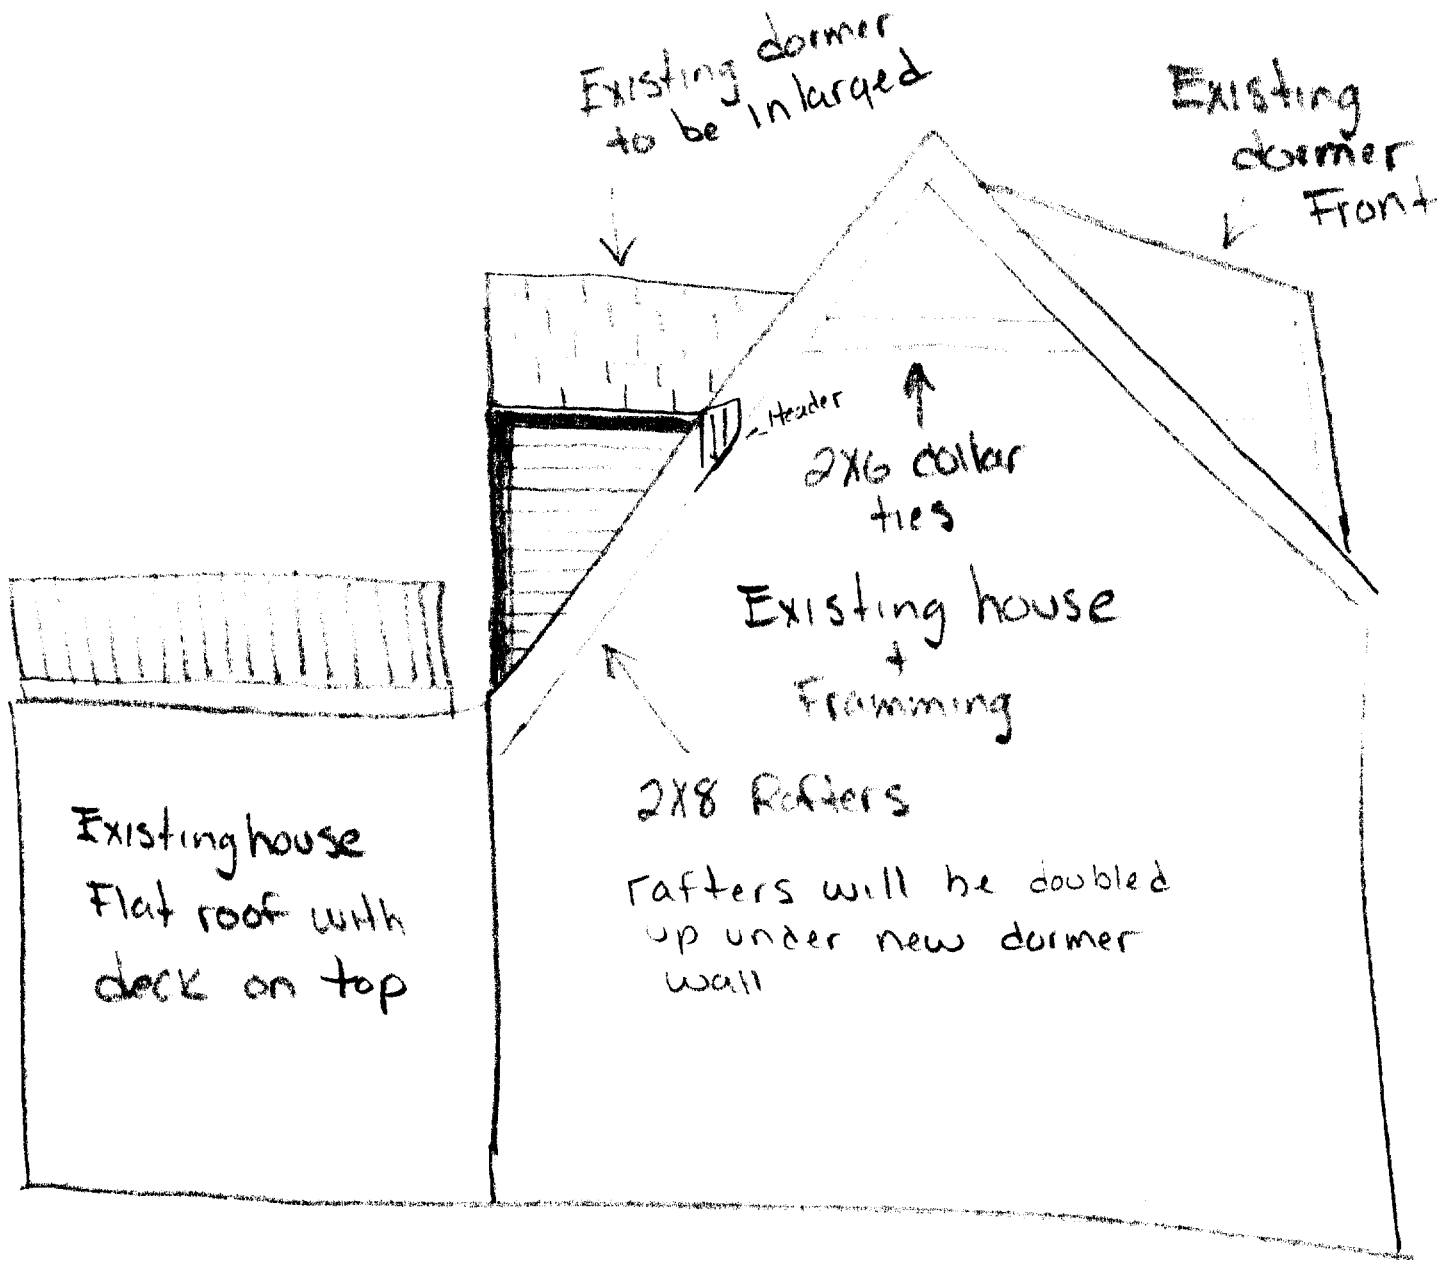 Existing dormer
to be inlarged
Existing
dormer
Front
Header
2x6 collar
ties
Existing house
+
Framming
2x8 Rafters
rafters will be doubled
up under new dormer
wall
Existing house
Flat roof with
deck on top